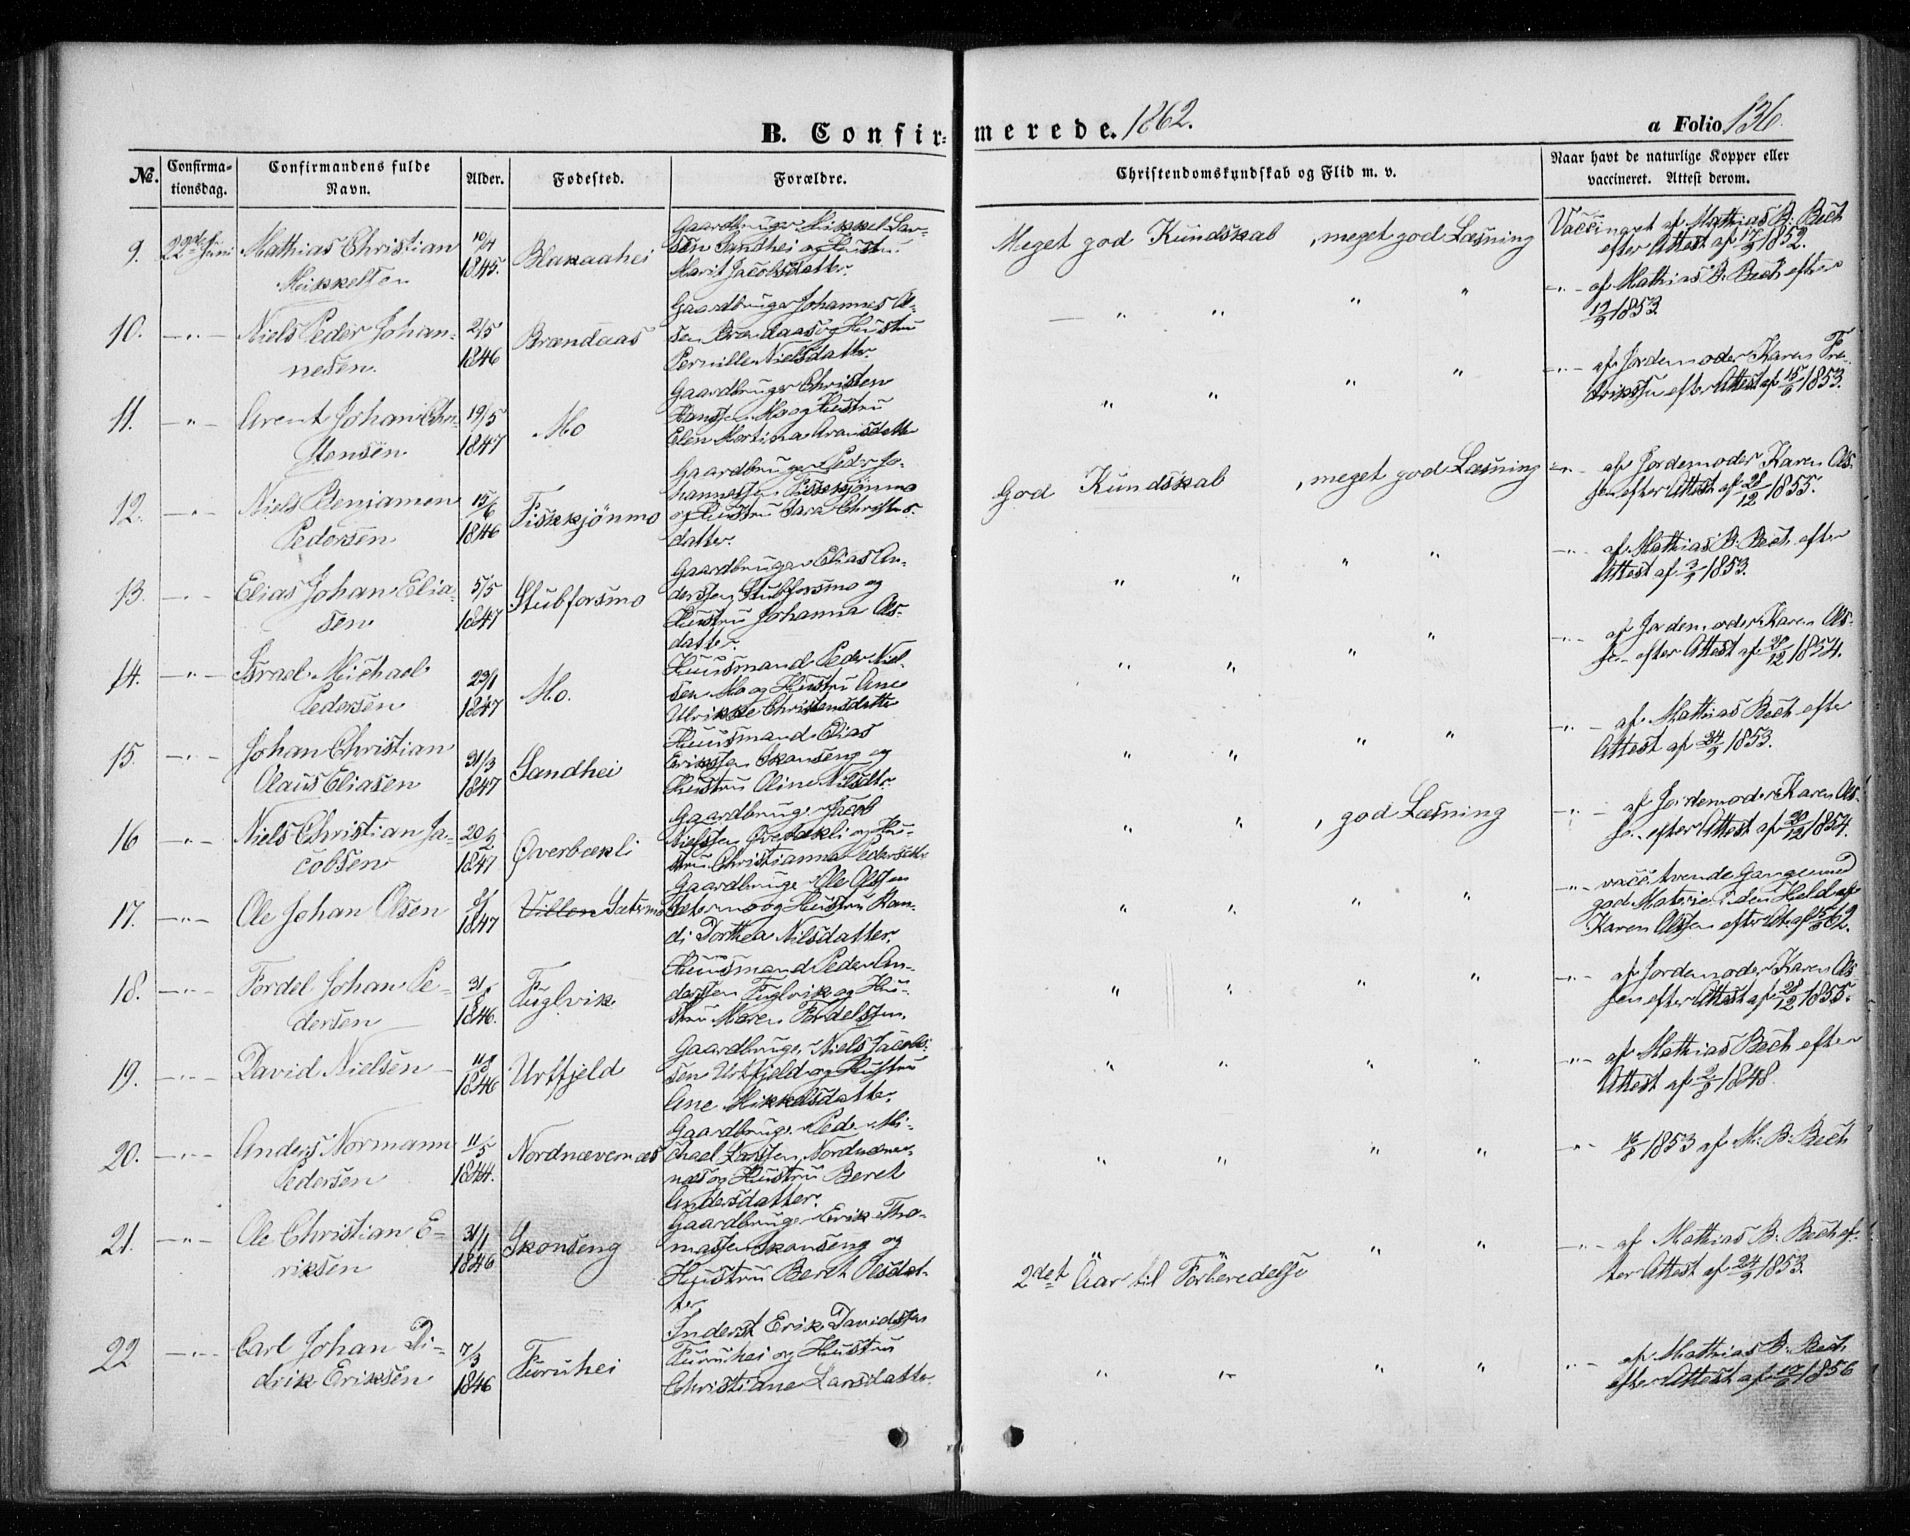 B. Confirmerede. 1862.
a Folio 136.
No.
Confirmationsdag.
Confirmandens fulde Navn.
Alder.
Fodested.
Forældre.
Christendomskundskab og Flid m. v.
Naar havt de naturlige Kopper eller vaccineret. Attest derom.
9. 22de Juni
Mathias Christian
Mikkelsen
1845.
Blakaahei
Gaardbruger Mikkel Lar-
sen Sandhei og Hustru
Marit Jacobsdatter.
Meget god Kundskab, meget god Læsning
Vaccineret af Mathias B. Bech
efter Attest af 17/9 1852.
10. —"—
Niels Peder Johan-
nesen.
2/5
1846
Brændaas
Gaardbruger Johannes Ol-
sen Brændaas og Hustru
Pernille Nielsdatter.
" " " "
—"— af Mathias B. Bech efter
1853
11. —"—
Arent Johan Chri-
stensen
19/5
1847
Mo
Gaardbruger Christen
Hanssen Mo og Hustru
Elen Martina Arensdatter
" " " "
—"— af Jordemoder Karen Fre-
driksen efter Attest af 1853.
12. —"—
Niels Benjamen
Pedersen
15/6
1846
Fiskkjönmo
Gaardbruger Peder Jo-
hannessen Fiskkjönmo
og Hustru Sara Christens-
datter.
God Kundskab, meget god Læsning
—"— af Jordemoder Karen Ols-
sen efter Attest af 28/12 1855.
13. —"—
Elias Johan Elia-
sen
5/5
1847
Stubforsmo
Gaardbruger Elias An-
dersen Stubforsmo og
Hustru Johanna Ols-
datter.
" " " "
—"— af Mathias B. Bech efter
Attest af 1853.
14. —"—
Israel Michael
Pedersen
29/1
1847
Mo.
Huusmand Peder Niel-
sen Mo og Hustru Ane
Ulrikke Christensdatter
" " " "
—"— af Jordemoder Karen Ols-
sen efter Attest af 1854.
15. —"—
Johan Christian
Olaus Eliasen
31/3
1847
Sandhei
Huusmand Elias
Erikssen Skonseng og
Hustru Oline Nilsdtr.
" " " "
—"— af Mathias Bech efter
Attest af 24/9 1853.
16 —"—
Niels Christian Ja-
cobsen
20/2
1847
Øverbækli
Gaardbruger Jacob
Nielssen Øverbækli og Hu-
stru Christianna Pedersdtr
" " , god Læsning
—"— af Jordemoder Karen Ols-
sen efter Attest af 1854.
17. —"—
Ole Johan Olsen
1847
Villen Sætermo
Gaardbruger Ole Olssen
Sætermo og Hustru Ran-
di Dorthea Nilsdatter.
" " " "
—"— vacci. tvende Gange med
god Materie uden Held af
Karen Olssen efter At. af 1862.
18. —"—
Fordel Johan Pe-
dersen
1846.
Fuglvik
Huusmand Peder An-
derssen Fuglvik og Hu-
stru Maren Fordelssen.
" " " "
—"— af Jordemoder Karen Ols-
sen efter Attest af 28/12 1855.
19. —"—
David Nielsen
11/8
1846
Urtfjeld
Gaardbruger Niels Jacob-
sen Urtfjeld og Hustru
Ane Mikkelsdatter.
" " " "
—"— af Mathias Bech efter
Attest af 1848.
20. —"—
Anders Normann
Pedersen
11/5
1844.
Nordnævernæs
Gaardbruger Peder Mi-
chael Larssen Nordnæver-
næs og Hustru Beret
Andersdatter.
" " " "
—"— 1853 af M. B. Bech
21. —"—
Ole Christian E-
riksen
31/1
1846
Skonseng
Gaardbruger Erik Tho-
massen Skonseng og
Hustru Beret Olsdat-
ter
2det Aar til Forberedelse " "
—"— af Mathias B. Bech ef-
ter Attest af 24/9 1853.
22 —"—
Carl Johan Di-
drik Eriksen
7/3
1846
Furuhei
Inderst Erik Davidssen
Furuhei og Hustru
Christiane Larsdatter.
" " " "
—"— af Mathias B. Bech
efter Attest af 1856